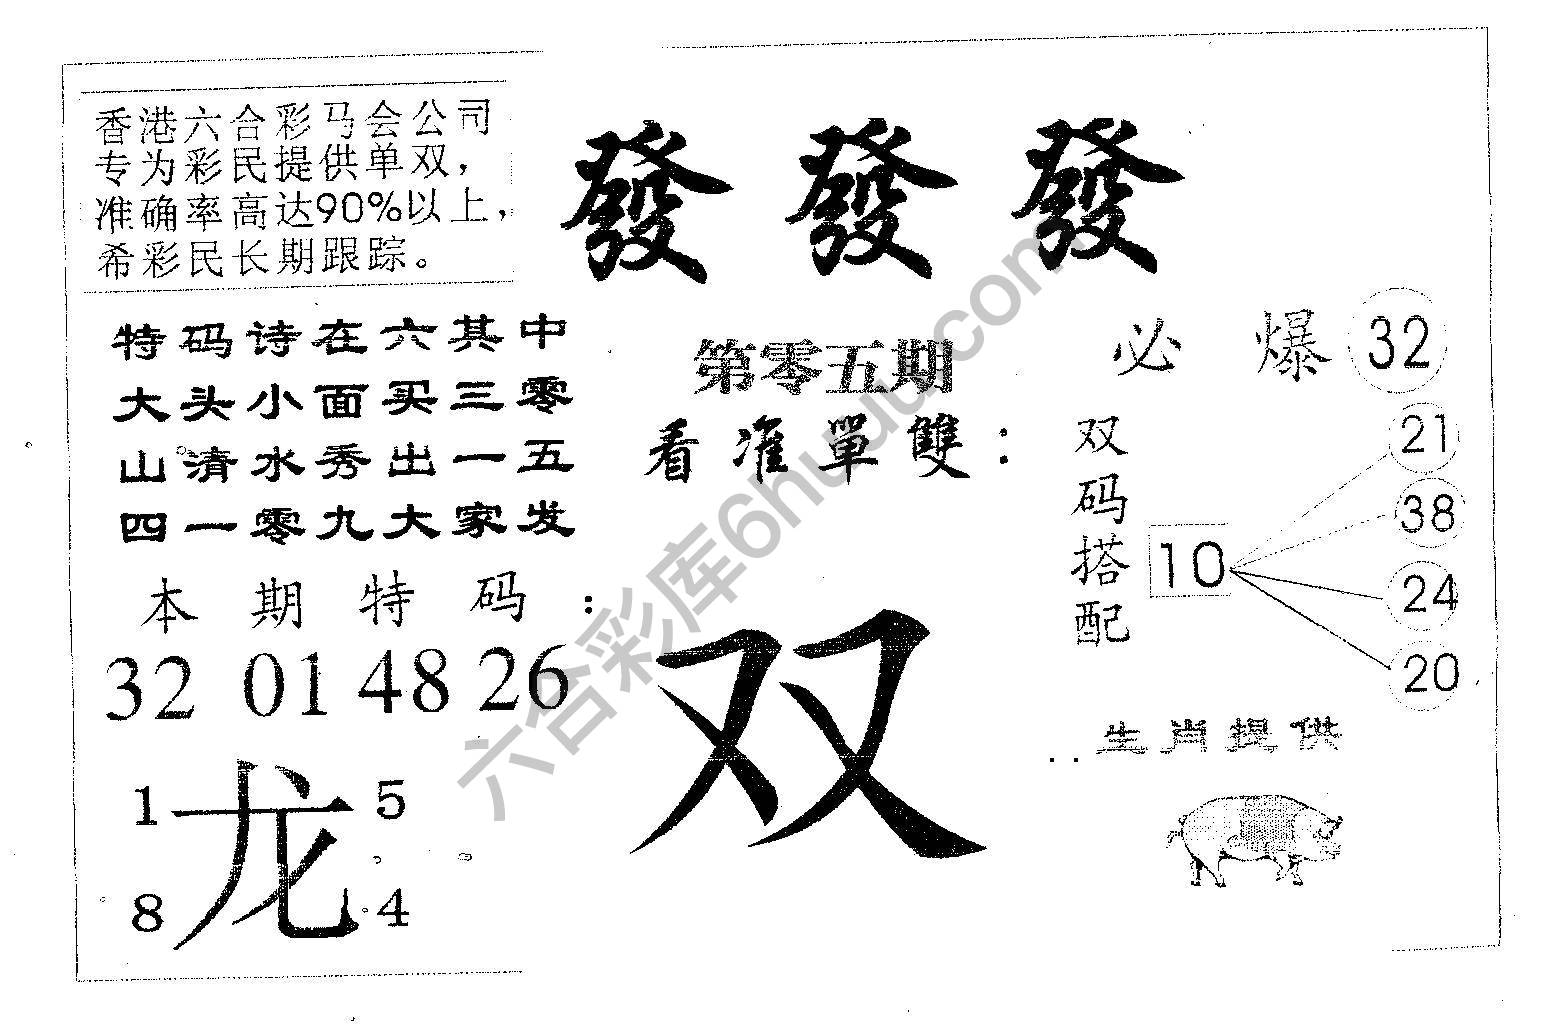 香港六合彩马会公司
专为彩民提供单双，
准确率高达90%以上，
希彩民长期跟踪。
發發發
特码诗在六其中
大头小面买三零
山清水秀出一五
四一零九大家发
第零五期
看准單雙：
必爆32
双码搭配
10
21
38
24
20
本期特码：
32 01 48 26
双
..生肖提供
1 5
龙
8 4
六合彩库6huuu.com